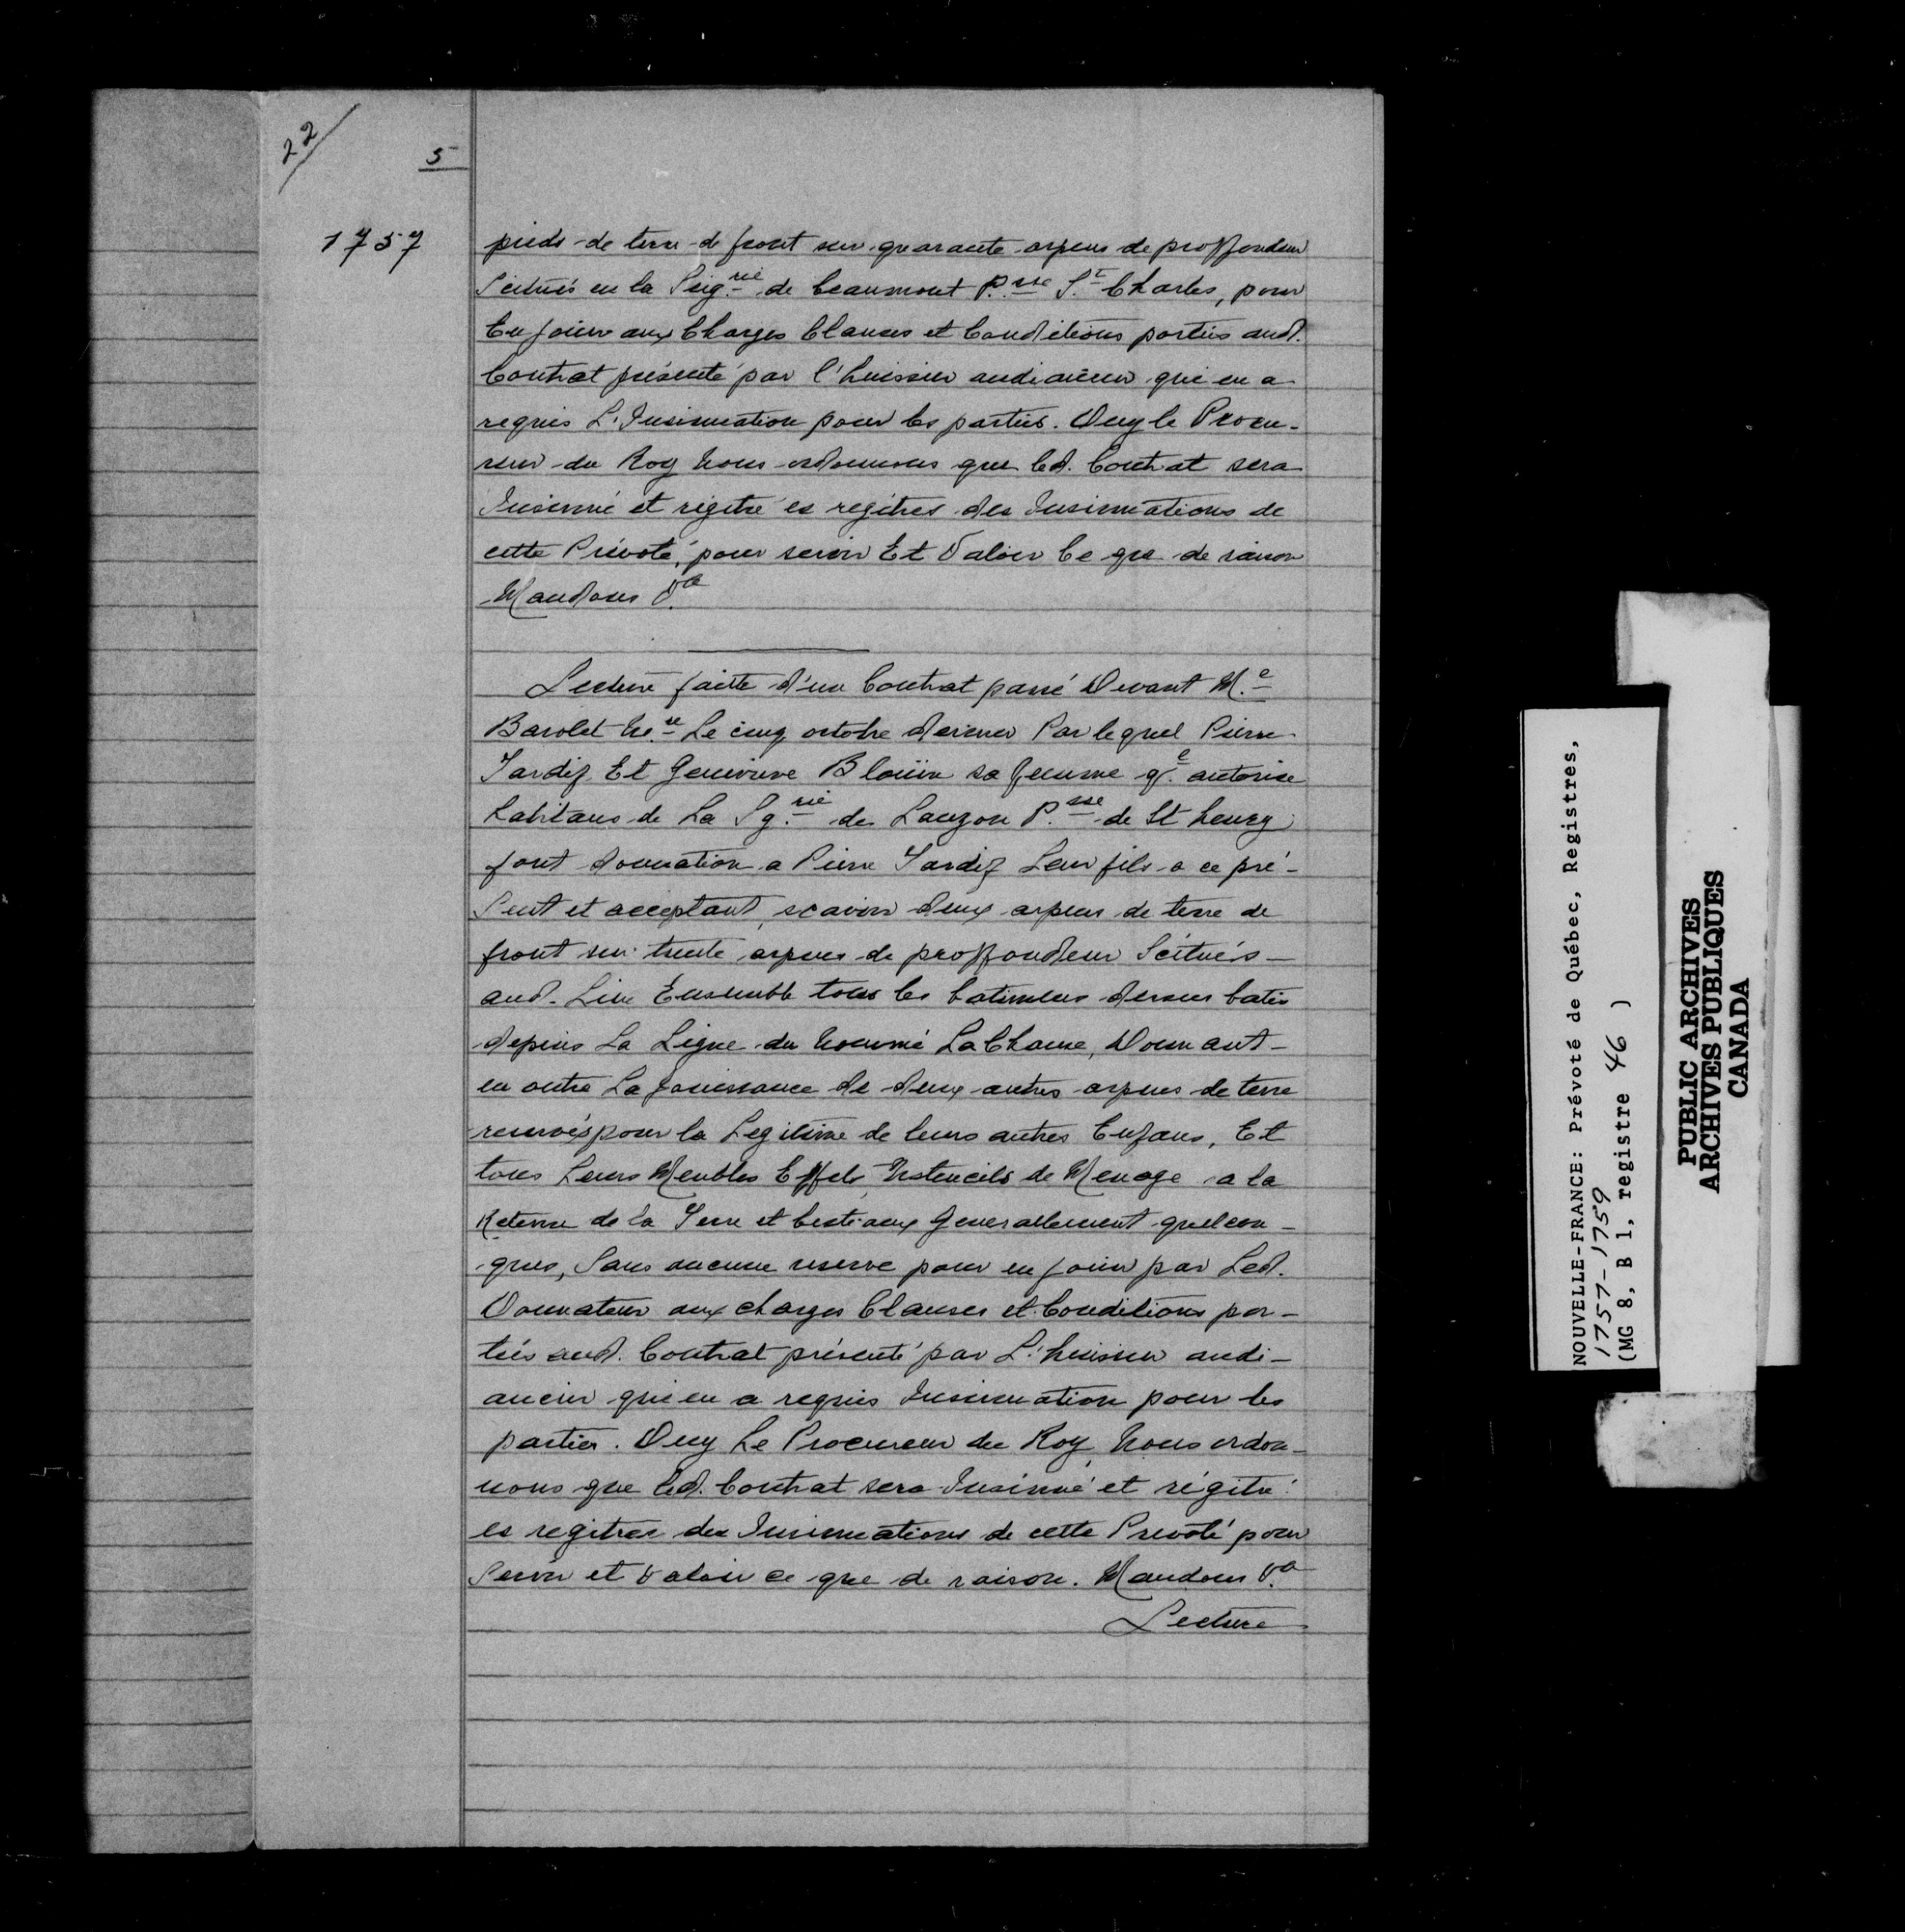 22
5
1757
pieds de terre de front sur quarante arpens de proffondeur
Scitués en la Seig.rie de Beaumont P.sse S.t Charles, pour
En jouir aux Charges Clauses et Conditions portées aud.
Contrat présenté par l'huissier audiancier qui en a
requis L'Insinuation pour les parties. Ouy le Procu-
reur du Roy Nous ordonnons que led. Contrat sera
Insinué et régitré es regitres des Insinuations de
cette Prévoté, pour servir Et Valoir Ce que de raison
Mandons &.a
Lecture faitte d'un Contrat passé Devant M.e
Barolet No.re Le cinq octobre dernier Par lequel Pierre
Tardif Et Genevieve Bloüin sa femme q. autorise
habitans de La Sg.rie de Lauzon P.sse de St henry
font donnation a Pierre Tardif Leur fils a ce pré-
Sent et acceptant, scavoir deux arpens de terre de
front sur trente arpens de proffondeur Scitués
aud. Lieu Ensemble tous les batimens dessus batis
depuis La Ligne du Nommé LaChaine, Donnant
en outre La Jouissance de deux autres arpens de terre
reservés pour la Legitime de leurs autres Enfans, Et
tous Leurs Meubles Effets Ustencils de Menage a la
Retenue de la Terre et bestiaux Generallement quelcon-
ques, Sans aucune reserve pour en jouir par Led.
Donnateur aux charges Clauses et Conditions por-
tées aud. Contrat présenté par L'huissier audi-
ancier qui en a requis Insinuation pour les
parties. Ouy Le Procureur du Roy Nous ordon-
nons que led. Contrat sera Insinué et régitré
es regitres des Insinuations de cette Prevoté pour
Servir et Valoir ce que de raison. Mandons &.a
Lecture
NOUVELLE-FRANCE: Prévoté de Québec, Registres,
1757-1759
(MG 8, B 1, registre 46 )
PUBLIC ARCHIVES
ARCHIVES PUBLIQUES
CANADA